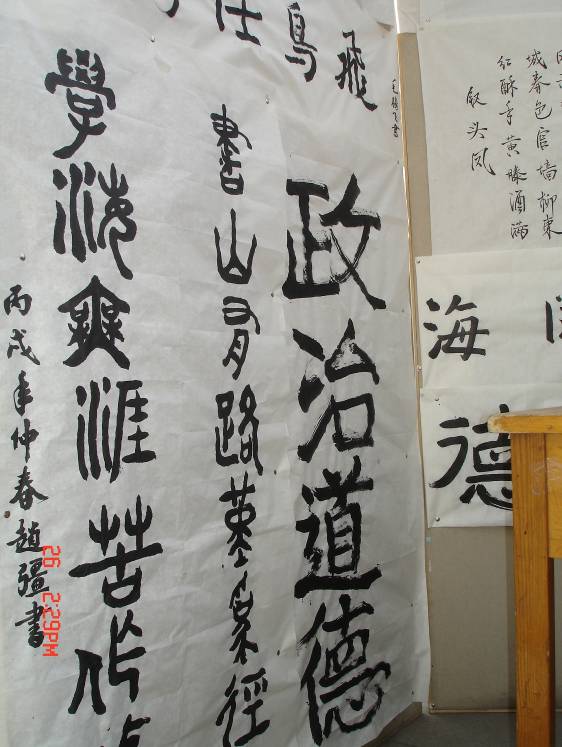 钗头凤
红酥手黄滕酒满
城春色宫墙柳東
海
德
飛
鳥
任
政治道德
書山有路墓為徑
學海無涯苦作
丙戌年仲春趙疆書
26 2:29PM